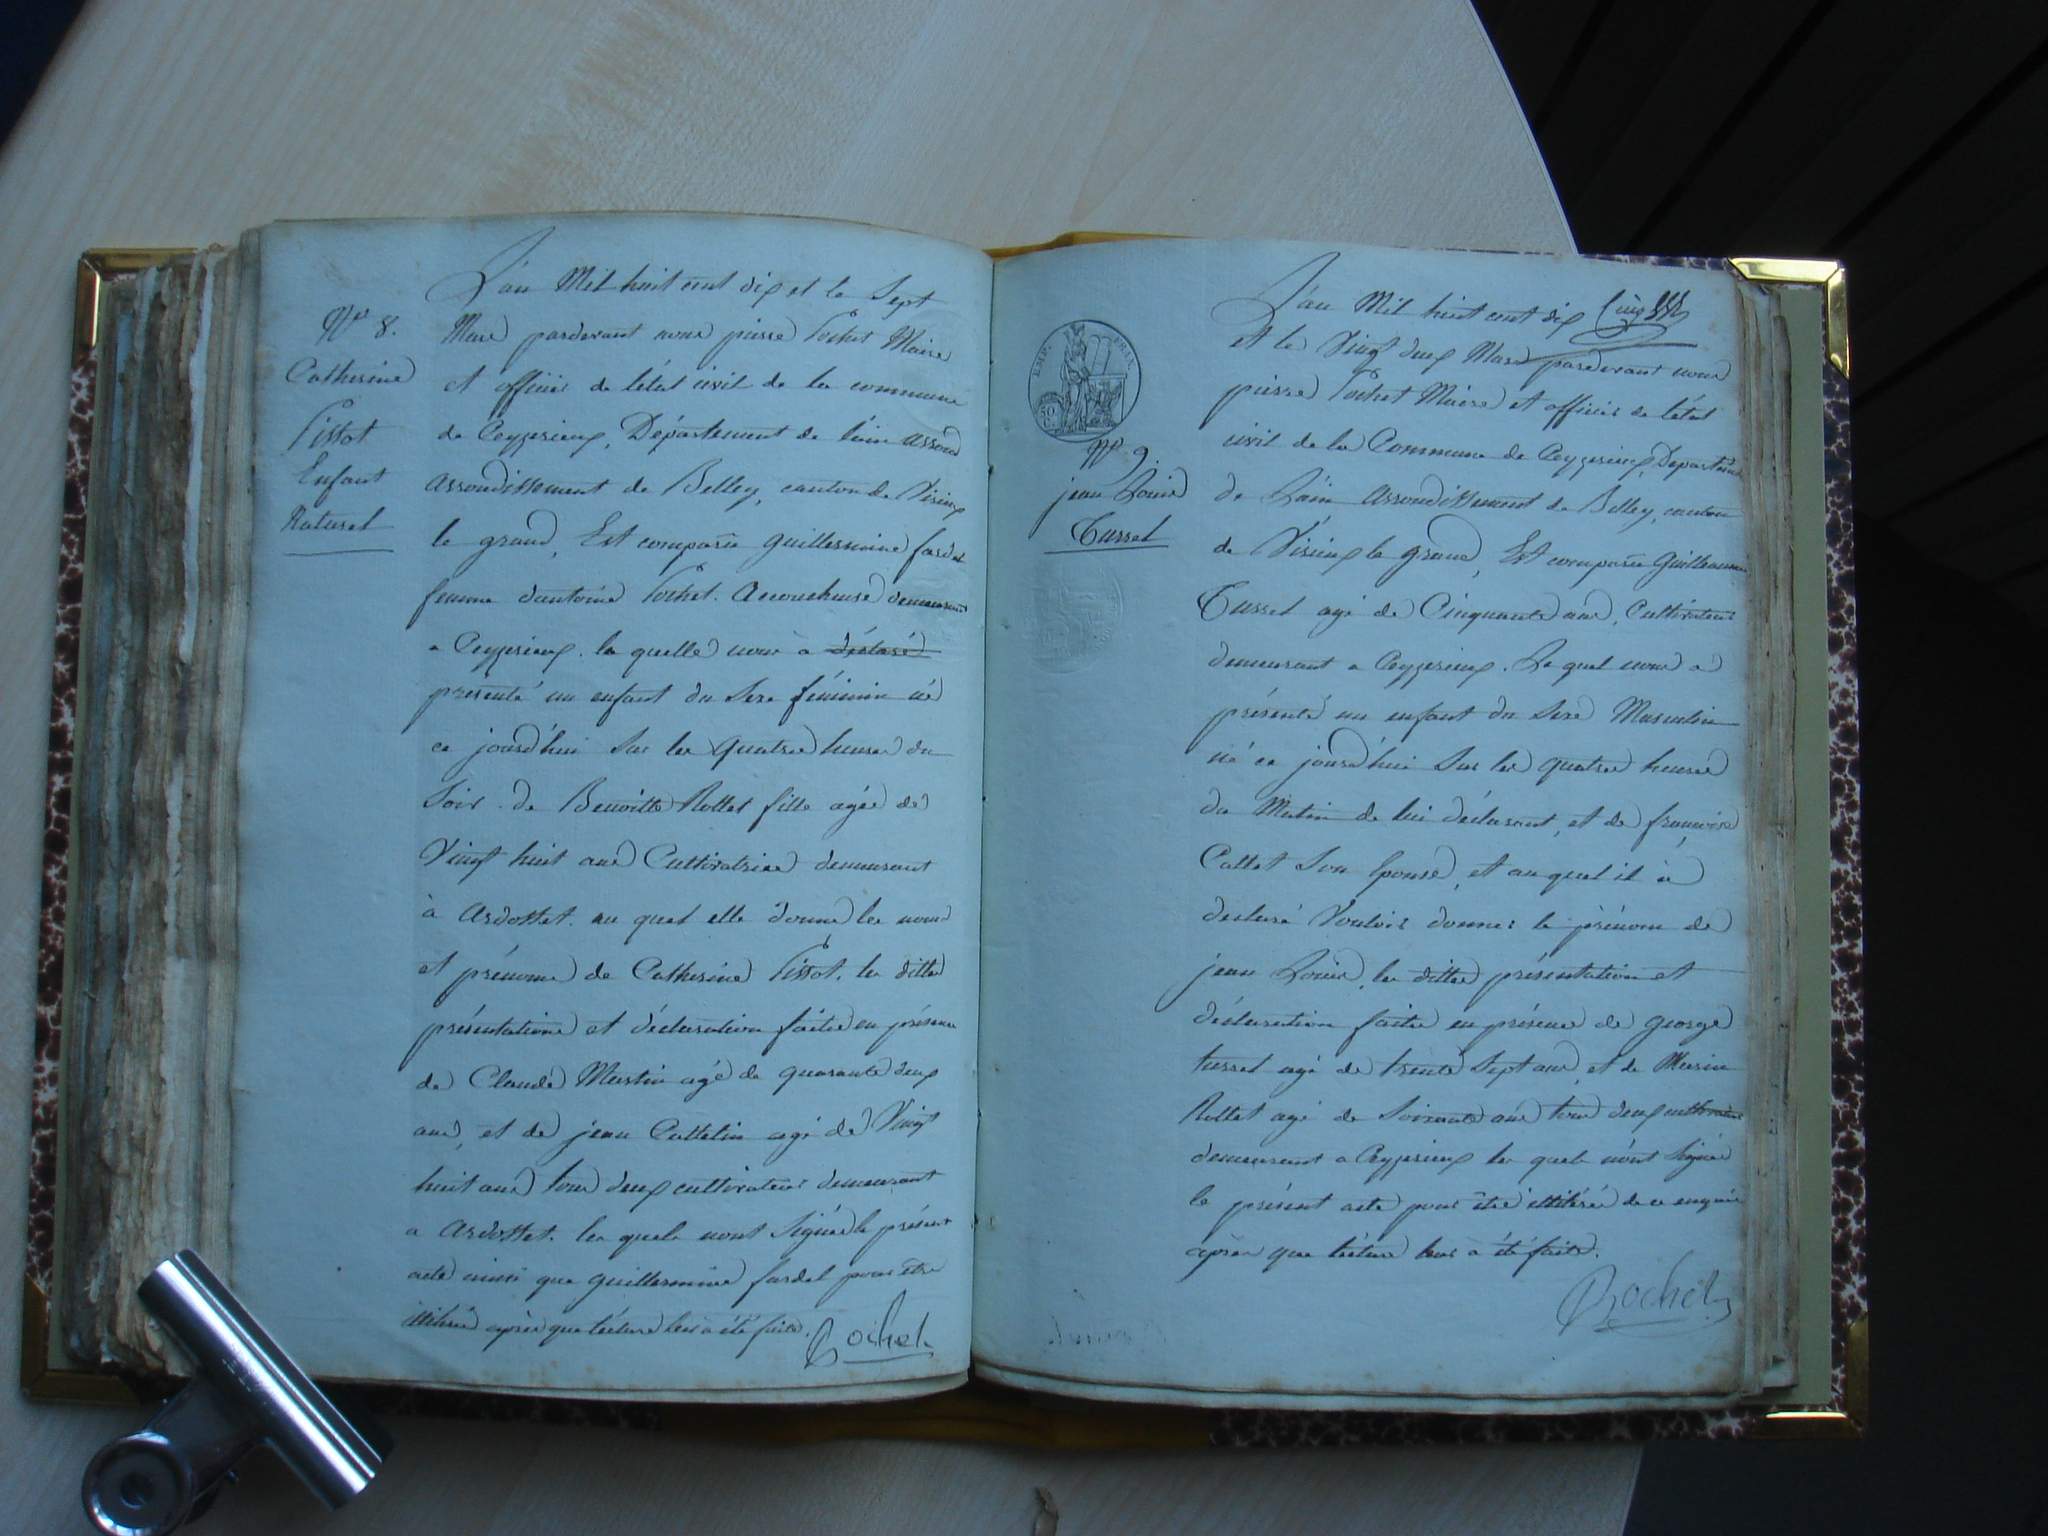 L'an Mil huit cent dix et le Sept
Nº 8.
Mars pardevant nous pierre Pochet Maire
Catherine
et officier de l'état civil de la commune
Pissot
de Ceyzerieux, Département de l'ain arrond
Enfant
arrondissement de Belley, canton de Virieux
Naturel
le grand, Est comparüe guillermine fardel
femme d'antoine Pochet. Accoucheuse demeurant
a Ceyzerieux. la quelle nous à déclaré
présenté un enfant du Sexe féminin né
ce jourd'hui Sur les quatre heures du
Soir de Benoitte Rollet fille agée de
Vingt huit ans Cultivatrice demeurant
à Ardosset. au quel elle donne les noms
et prénoms de Catherine Pissot. les dittes
présentations et déclaration faites en présence
de Claude Martin agé de quarante deux
ans, et de jean Cattelin agé de Vingt
huit ans tous deux cultivateurs demeurant
a Ardosset. les quels n'ont Signés le présent
acte ainsi que guillermine fardel pour être
illitérés après que lécture leurs à été faite.
Pochet
L'an Mil huit cent dix
et le Vingt deux Mars pardevant nous
pierre Pochet Maire et officier de l'état
civil de la Commune de Ceyzerieux, Département
EMP. FRAN.
50 C.
Nº 9.
jean Louis
Tussel
de L'ain arrondissement de Belley, canton
de Virieux le grand, Est comparüe guilleaume
Tussel agé de Cinquante ans, Cultivateur
demeurant a Ceyzerieux. Le quel nous a
présenté un enfant du Sexe Masculin
né ce jourd'hui Sur les quatre heures
du Matin de lui déclarant, et de françoise
Cattet Son Epouse, et au quel il à
declaré Vouloir donner le prénom de
jean Louis, les dittes présentation et
déclaration faites en présence de george
tussel agé de trente Sept ans, et de
Rollet agé de Soixante ans tous deux cultivateurs
demeurant a Ceyzerieux les quels n'ont Signés
le présent acte pour être illitérés de ce enquis
après que lécture leurs à été faite.
Pochet